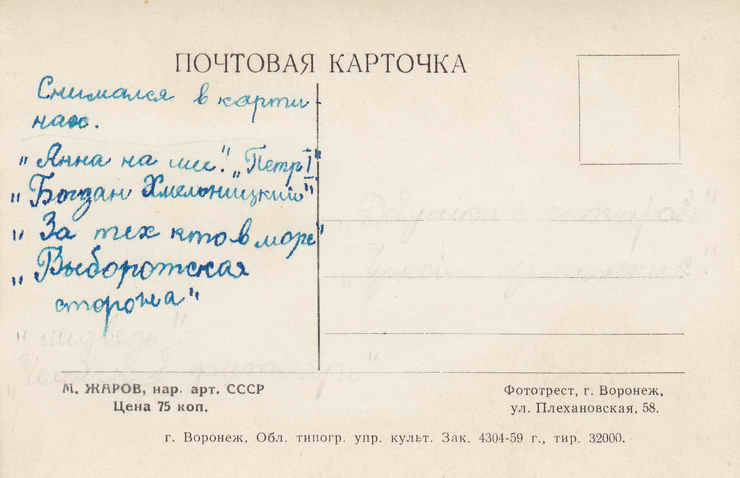 ПОЧТОВАЯ КАРТОЧКА
Снимался в карти-
нах.
"Анна на шее". "Петр I"
"Богдан Хмельницкий"
"За тех кто в море"
"Выборотская
сторона"
М. ЖАРОВ, нар. арт. СССР
Цена 75 коп.
Фототрест, г. Воронеж,
ул. Плехановская, 58.
г. Воронеж, Обл. типогр. упр. культ. Зак. 4304-59 г., тир. 32000.